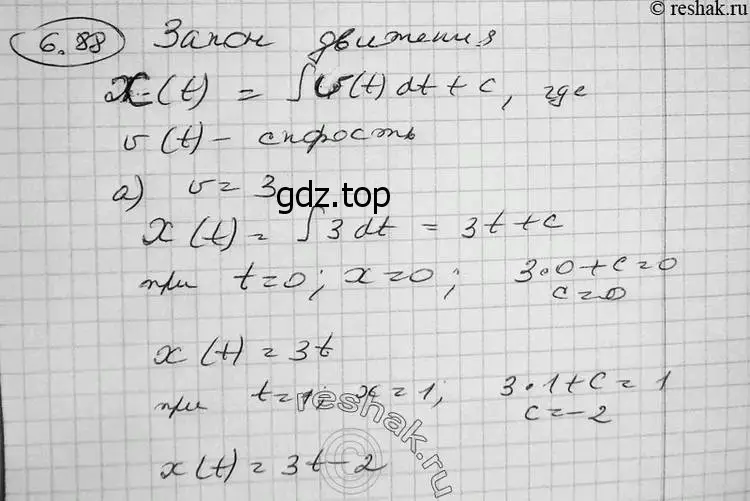 © reshak.ru
6.88 Закон движения
x(t) = ∫v(t) dt + c, где
v(t) – скорость
а) v = 3
gdz.top
x(t) = ∫3 dt = 3t + c
при t=0; x=0; 3·0+c=0
c=0
x(t) = 3t
при t=1; x=1; 3·1+c=1
c=-2
reshak.ru
x(t) = 3t-2